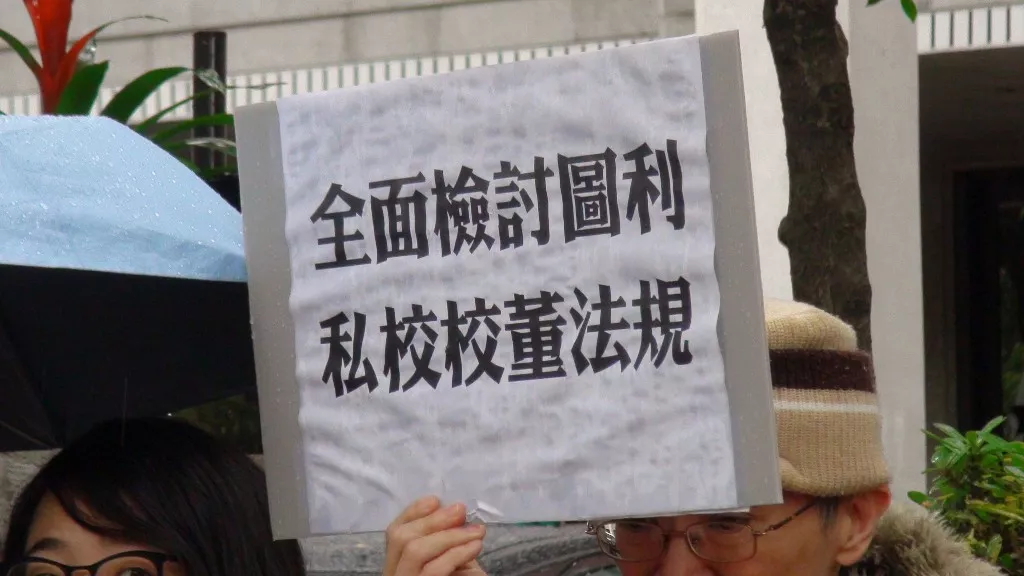 全面檢討圖利
私校校董法規